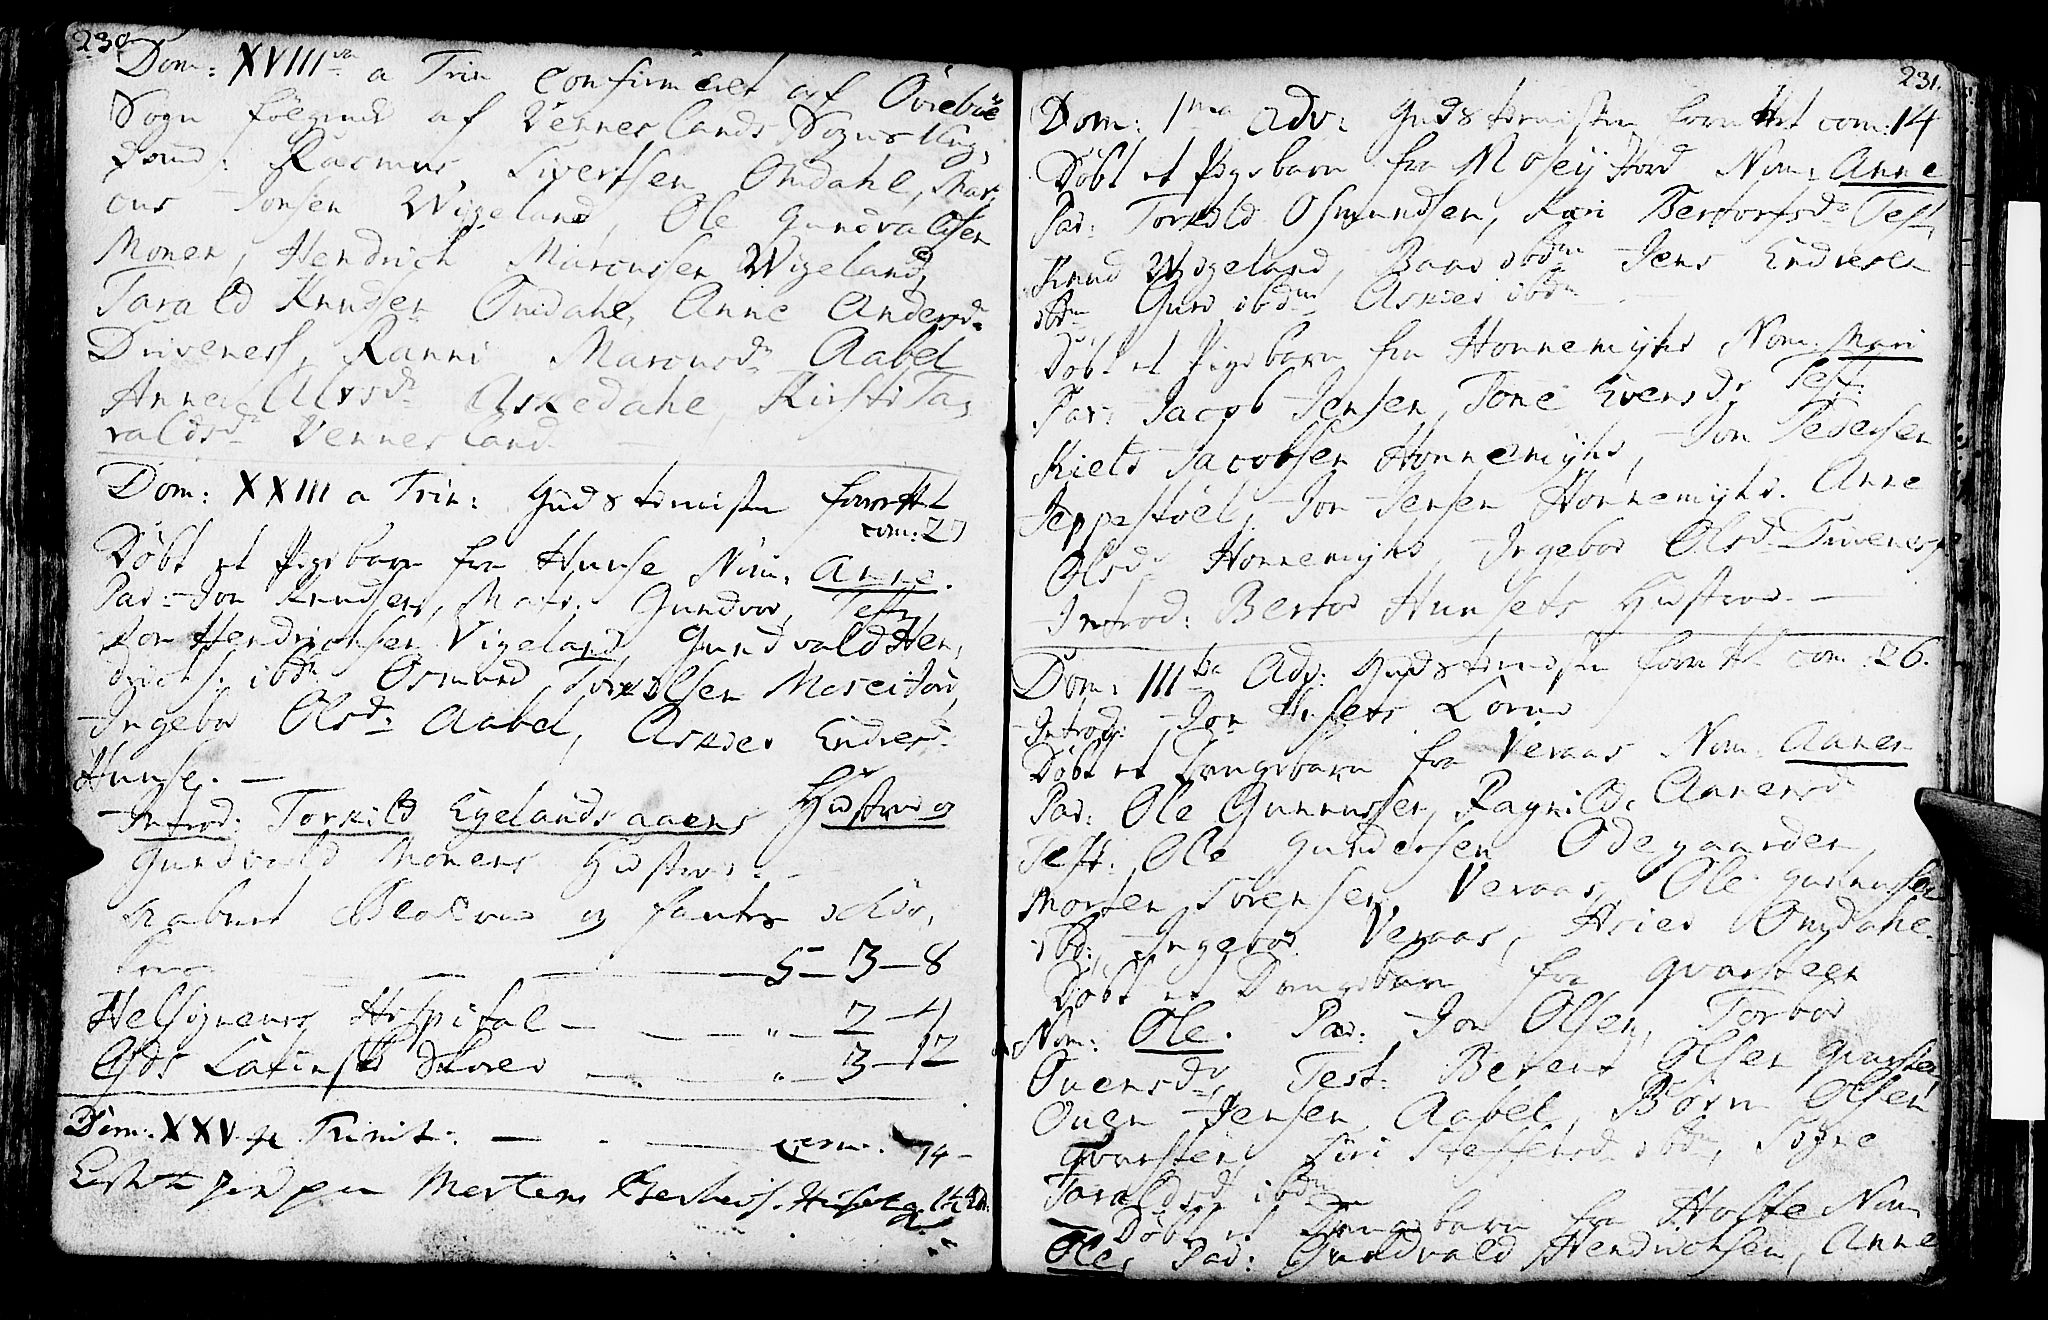 230
Dom: XVIII a Trin confirmeret af Öviebøe
Sogn følgende af Venneslands Sogns Ung,
dom: Rasmus Sivertsen Omdahl, Mar,
cus Jonsen Wigeland, Ole Gundvaldsen
Monen, Hendrich Marcussen Wigeland,
Tarald Knudsen Omdahl, Anne Andersdr
Drivenes, Ranni Marcusdr Aabel
Anne Alvsdr Askedahl, Kirsti Ta,
raldsdr Vennesland
Dom: XXIII a Trin: Gudstienisten forrettet
com: 27
Døbt et Pigebarn fra Hunse Nom: Anne.
Par: Jon Knudsen, Matr: Gundvor, Test:
Jon Hendrichsen Vigeland Gundvald Hen,
drichs. ibdm Osmund Torkelsen Moseijord,
Ingebor Olsdr Aabel, Askier Endresdr
Hunse. —
Introd: Torkild Egelandsaaens Hustrue og
Gundvald Monens Hustrue. —
5 — 3 — 8
Helsigneurs Hospital — „ — 2 — 4
Latinske Skoler — „ — 3 — 12
Dom: XXV p Trinit: — com: 14 —
Morten
231.
Dom: 1ma Adv: Gudstienisten forrettet com: 14
Døbt et Pigebarn fra Moseijord Nom: Anne
Par: Torkild Osmundsen, Kari Bertorsdr Test:
Knud Wigeland, Baar ibdm Jens Endresen
ibdm Guro ibdm Askier ibdm —
Døbt et Pigebarn fra Honnemyhr Nom: Mari
Par: Jacob Jensen, Tone Evensdr Test:
Kield Jacobsen Honnemyhr, Jon Pedersen
Jeppestøel, Jon Jensen Honnemyhr. Anne
Olsdr Honnemyhr Ingebor Olsdr Drivenes
Introd: Bertor Hunsets Hustrue. —
Dom: III Adv: Gudstienisten forrettet com: 26.
Introd: Jon Hunsets Kone
Døbt et Drengebarn fra Veraas Nom: Aanen
Par: Ole Gunnussen, Ragnild Aanensdr
Test: Ole Gundersen Ødegaarden,
Morten Sörensen Veraas, Ole Gunnussen
ibd; Ingebor Veraas, Asier Omdahl.
Døbt et Drengebarn fra Qvarsteen
Nom: Ole. Par: Jon Olsen, Torbor
Ouensdr, Test: Berent Olsen Qvarsten,
Ouen Jensen Aabel, Børn Olsen
Qvarsten, Siri Steffensdr ibdm, Signe
Taraldsdr ibdm
Døbt et Drengebarn fra Holte Nom
Ole, Par: Gundvald Hendrichsen, Anne